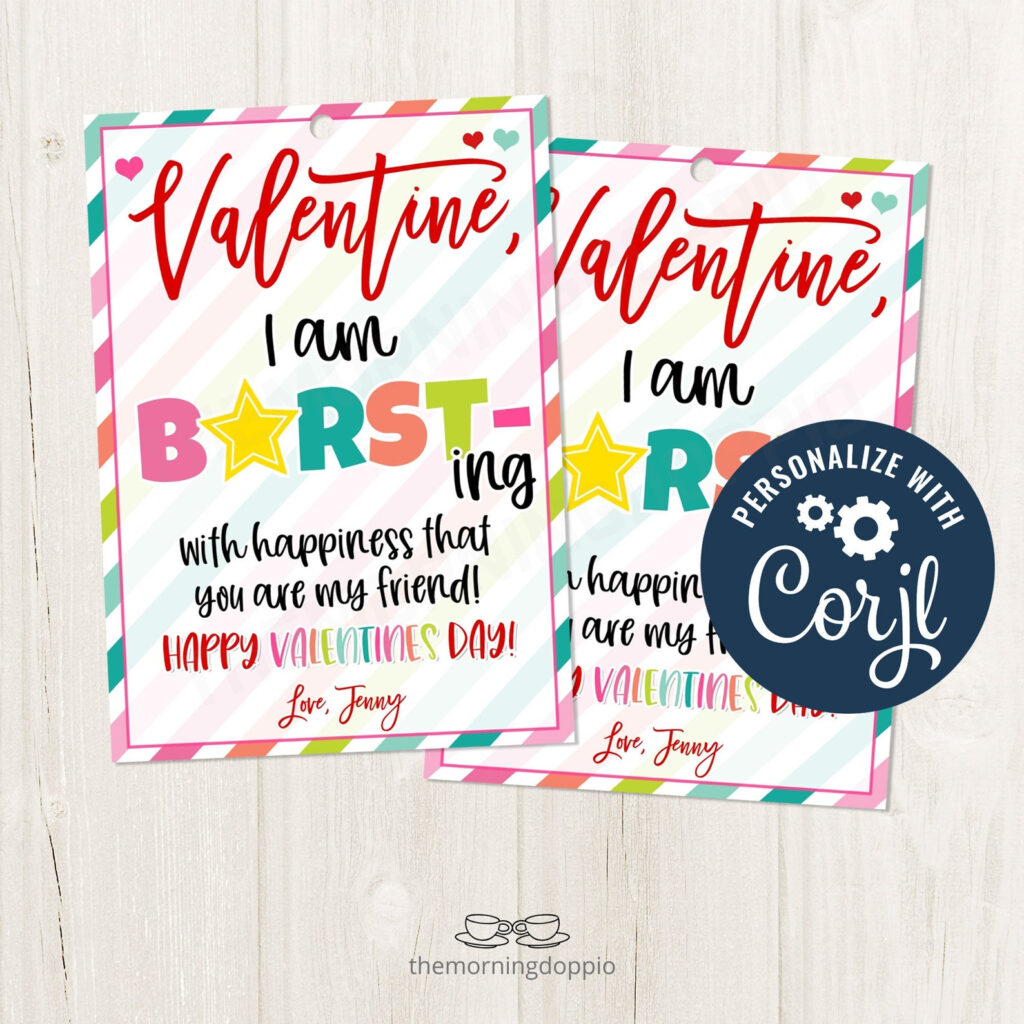 Valentine,
I am
B★RST-
ing
with happiness that
you are my friend!
HAPPY VALENTINES DAY!
Love, Jenny
Valentine,
I am
★RS
happin
are my f
VALENTINES
Love, Jenny
PERSONALIZE WITH
Corjl
themorningdoppio